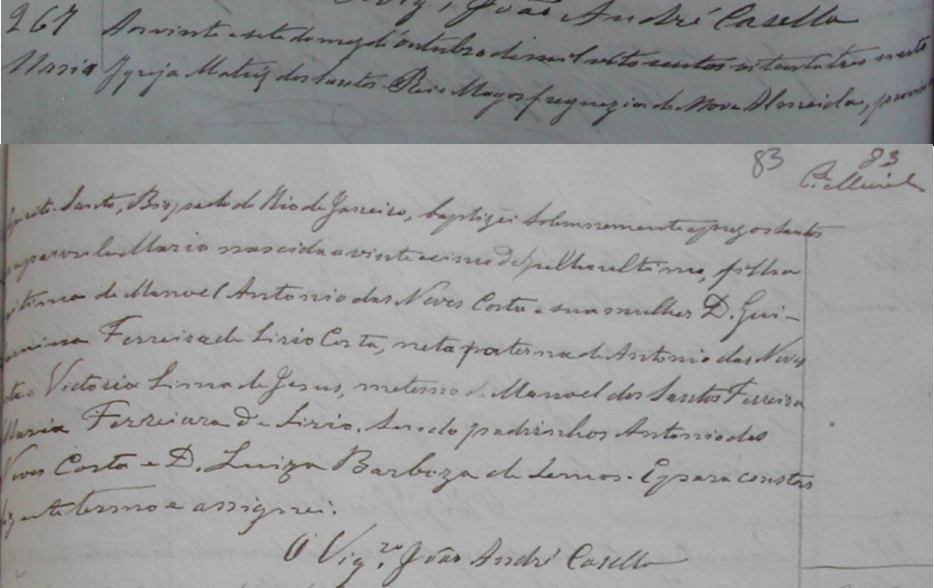 Vigº João André Casella
267 Aos vinte e sete do mez d'outubro de mil oito centos oitenta tres nesta
Maria Igreja Matriz dos Santos Reis Magos freguezia de Nova Almeida, provin
83 83
Santo, Bispado do Rio de Janeiro, baptizei solemnemente e puz os santos
Maria nascida a vinte e cinco de Julho ultimo, filha
de Manoel Antonio das Neves Costa e sua mulher D. Gui-
Ferreira de Lirio Costa, neta paterna de Antonio das Neves
Victoria Lima de Jesus, materno de Manoel dos Santos Ferreira
Maria Ferreira de Lirio. Sendo padrinhos Antonio das
Neves Costa e D. Luiza Barboza de Lemos. E para constar
termo e assignei.
O Vigrº João André Casella